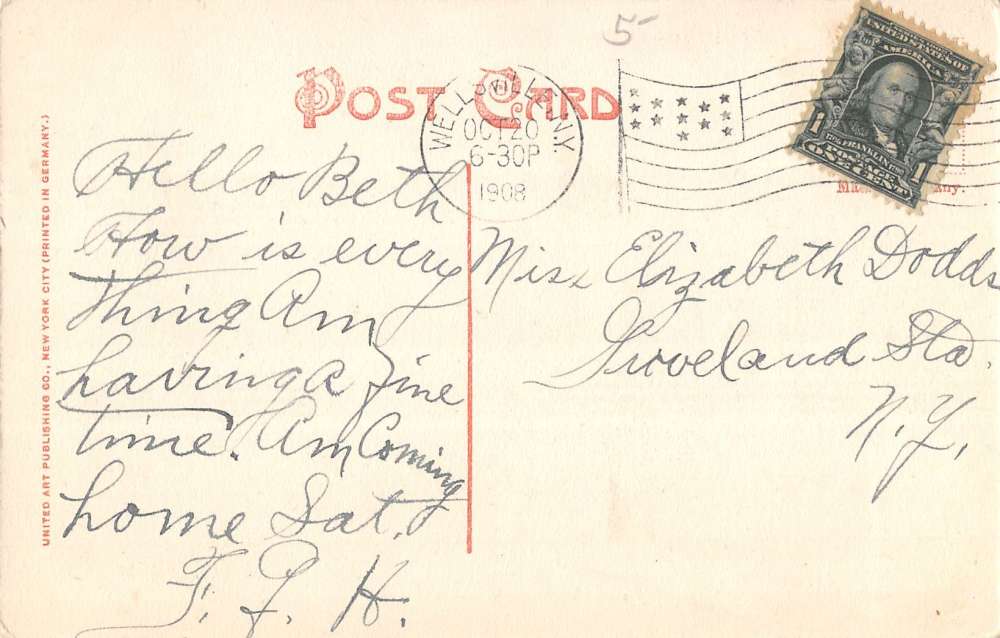 5-
POST CARD
WELLSVILLE, N.Y.
OCT 20
6-30P
1908
UNITED STATES OF
AMERICA
1 FRANKLIN 1
POSTAGE
ONE CENT
Hello Beth
How is every
thing Am
having a fine
time. Am Coming
home Sat.
F. J. H.
Miss Elizabeth Dodds
Groveland Sta.
N.Y.
UNITED ART PUBLISHING CO., NEW YORK CITY (PRINTED IN GERMANY.)